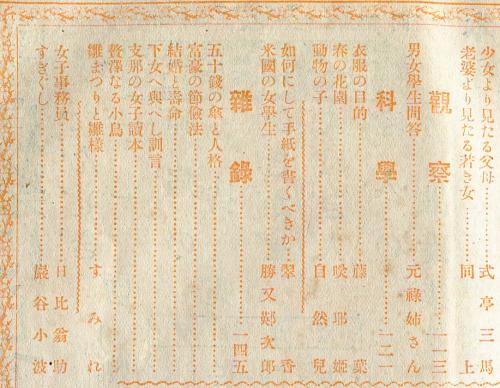 少女より見たる父母……式亭三馬
老婆より見たる若き女……同上
觀察……一一三
男女學生問答……元祿姉さん
科學……一二一
衣服の目的……藤葉
春の花園……咲耶姬
動物の子……自然兒
如何にして手紙を書くべきか…翠香
米國の女學生……勝又鄰次郎
雜錄……一四五
五十錢の傘と人格……
富豪の節儉法……
結婚と壽命……
下女へ與へし訓言……
支那の女子讀本……
贅澤なる小鳥……
雛まつりと雛樣……すみれ
女子事務員……日比翁助
すぎぐし……巖谷小波